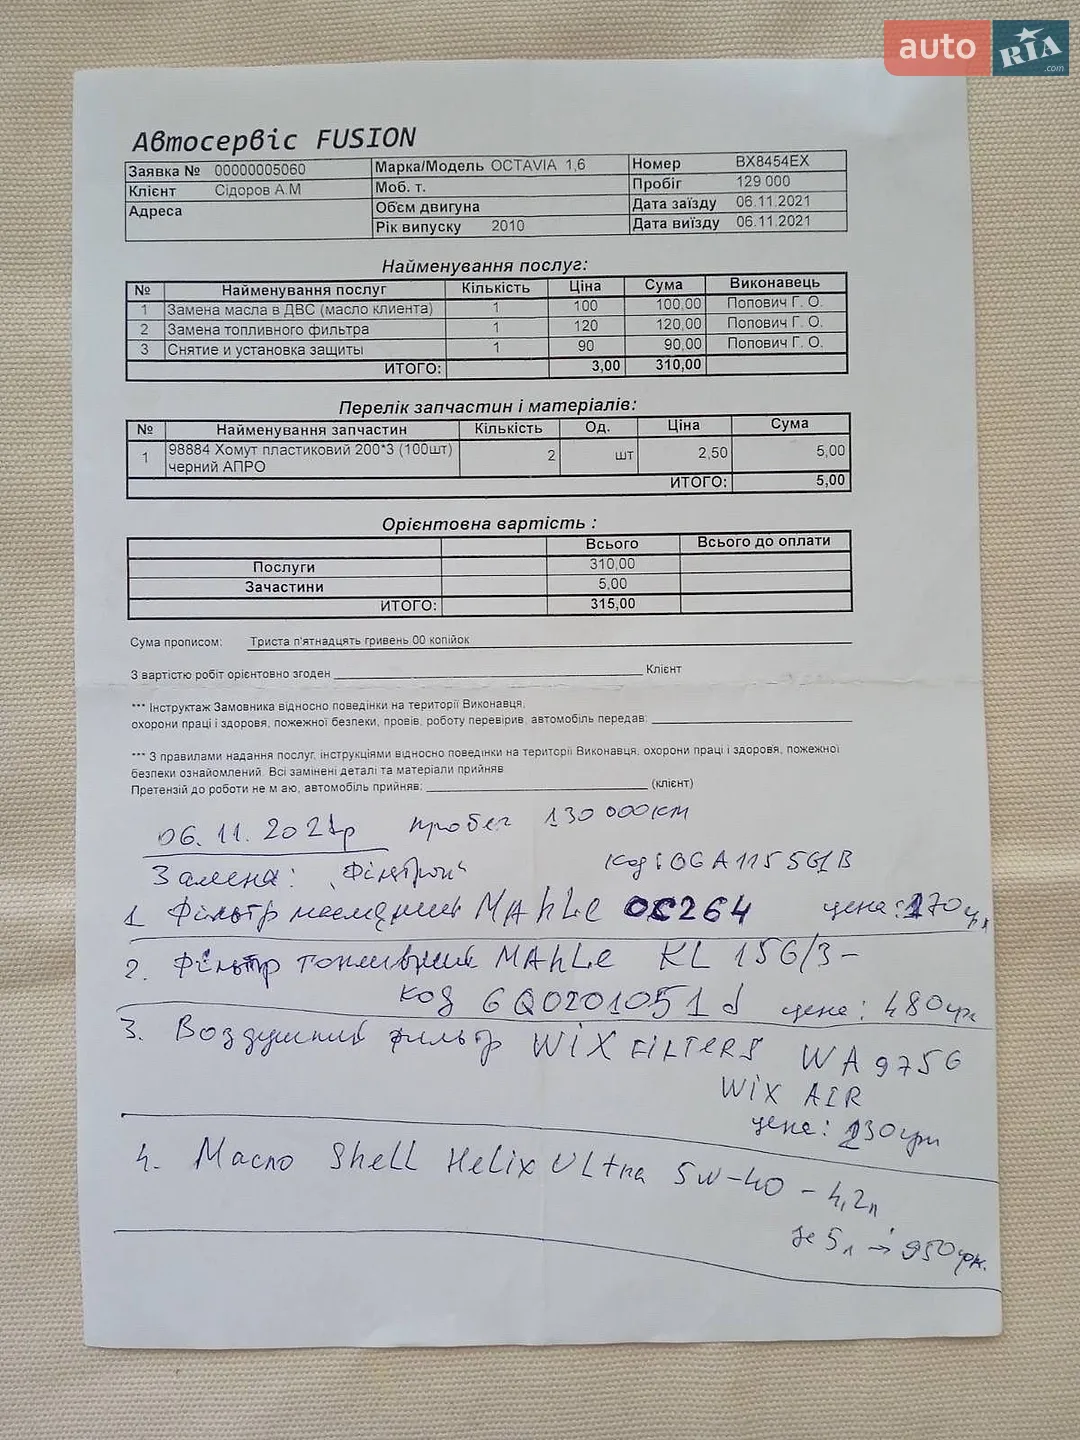 auto RIA .com
Автосервіс FUSION
Заявка № 00000005060 Марка/Модель OCTAVIA 1,6 Номер BX8454EX
Клієнт Сідоров А.М Моб. т. Пробіг 129 000
Адреса Обєм двигуна Дата заїзду 06.11.2021
Рік випуску 2010 Дата виїзду 06.11.2021
Найменування послуг:
№ Найменування послуг Кількість Ціна Сума Виконавець
1 Замена масла в ДВС (масло клиента) 1 100 100,00 Попович Г. О.
2 Замена топливного фильтра 1 120 120,00 Попович Г. О.
3 Снятие и установка защиты 1 90 90,00 Попович Г. О.
ИТОГО: 3,00 310,00
Перелік запчастин і матеріалів:
№ Найменування запчастин Кількість Од. Ціна Сума
1 98884 Хомут пластиковий 200*3 (100шт) 2 шт 2,50 5,00
черний АПРО
ИТОГО: 5,00
Орієнтовна вартість :
Всього Всього до оплати
Послуги 310,00
Зачастини 5,00
ИТОГО: 315,00
Сума прописом: Триста п'ятнадцять гривень 00 копійок
З вартістю робіт орієнтовно згоден Клієнт
*** Інструктаж Замовника відносно поведінки на території Виконавця,
охорони праці і здоровя, пожежної безпеки, провів, роботу перевірив, автомобіль передав:
*** З правилами надання послуг, інструкціями відносно поведінки на території Виконавця, охорони праці і здоровя, пожежної
безпеки ознайомлений. Всі замінені деталі та матеріали прийняв
Претензій до роботи не м аю, автомобіль прийняв: (клієнт)
06.11.2021р пробег 130 000км
Замена: Код: 06A115561B
1 Фільтр масляний MAhLe OC264 цена: 170грн
2. Фільтр топливний MAhLe KL 156/3 –
код 6Q0201051 d цена: 480грн
3. Воздушний фильтр WiX FiLTERS WA9756
WiX AIR
цена: 230грн
4. Масло Shell Helix ULtra 5w-40 – 4,2л
за 5л → 950грн.